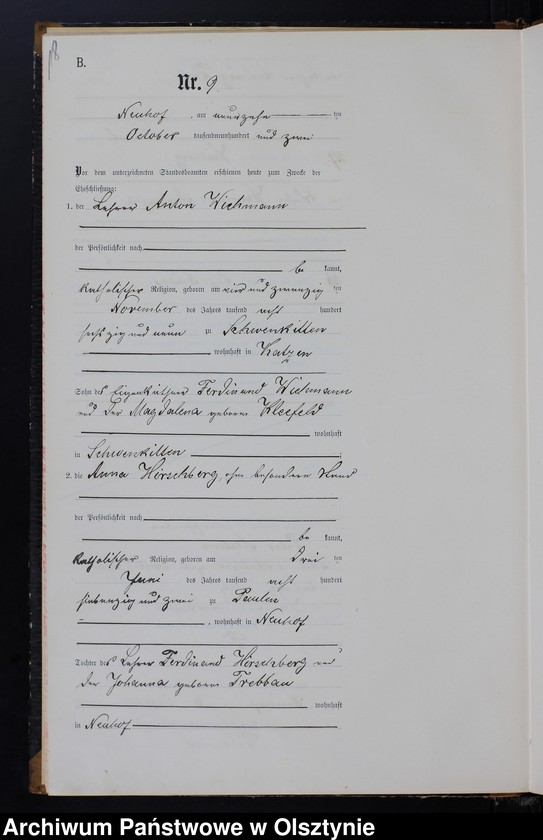 B.
Nr. 9
Neuhof, am neunzehn ten
October tausendneunhundert und zwei
Vor dem unterzeichneten Standesbeamten erschienen heute zum Zwecke der
Eheschließung:
1. der Lehrer Anton Wichmann
der Persönlichkeit nach
be kannt,
katholischer Religion, geboren am vier und zwanzig ten
November des Jahres tausend acht hundert
sechszig und neun zu Schwenkitten
, wohnhaft in Katzen
Sohn des Eigenkäthners Ferdinand Wichmann
und der Magdalena geborene Kleefeld
wohnhaft
in Schwenkitten ;
2. die Anna Hirschberg, ohne besonderen Stand
der Persönlichkeit nach
be kannt,
katholischer Religion, geboren am drei ten
Juni des Jahres tausend acht hundert
siebenzig und zwei zu Paulen
, wohnhaft in Neuhof
Tochter des Lehrer Ferdinand Hirschberg und
der Johanna geborene Trebbau
wohnhaft
in Neuhof
Archiwum Państwowe w Olsztynie